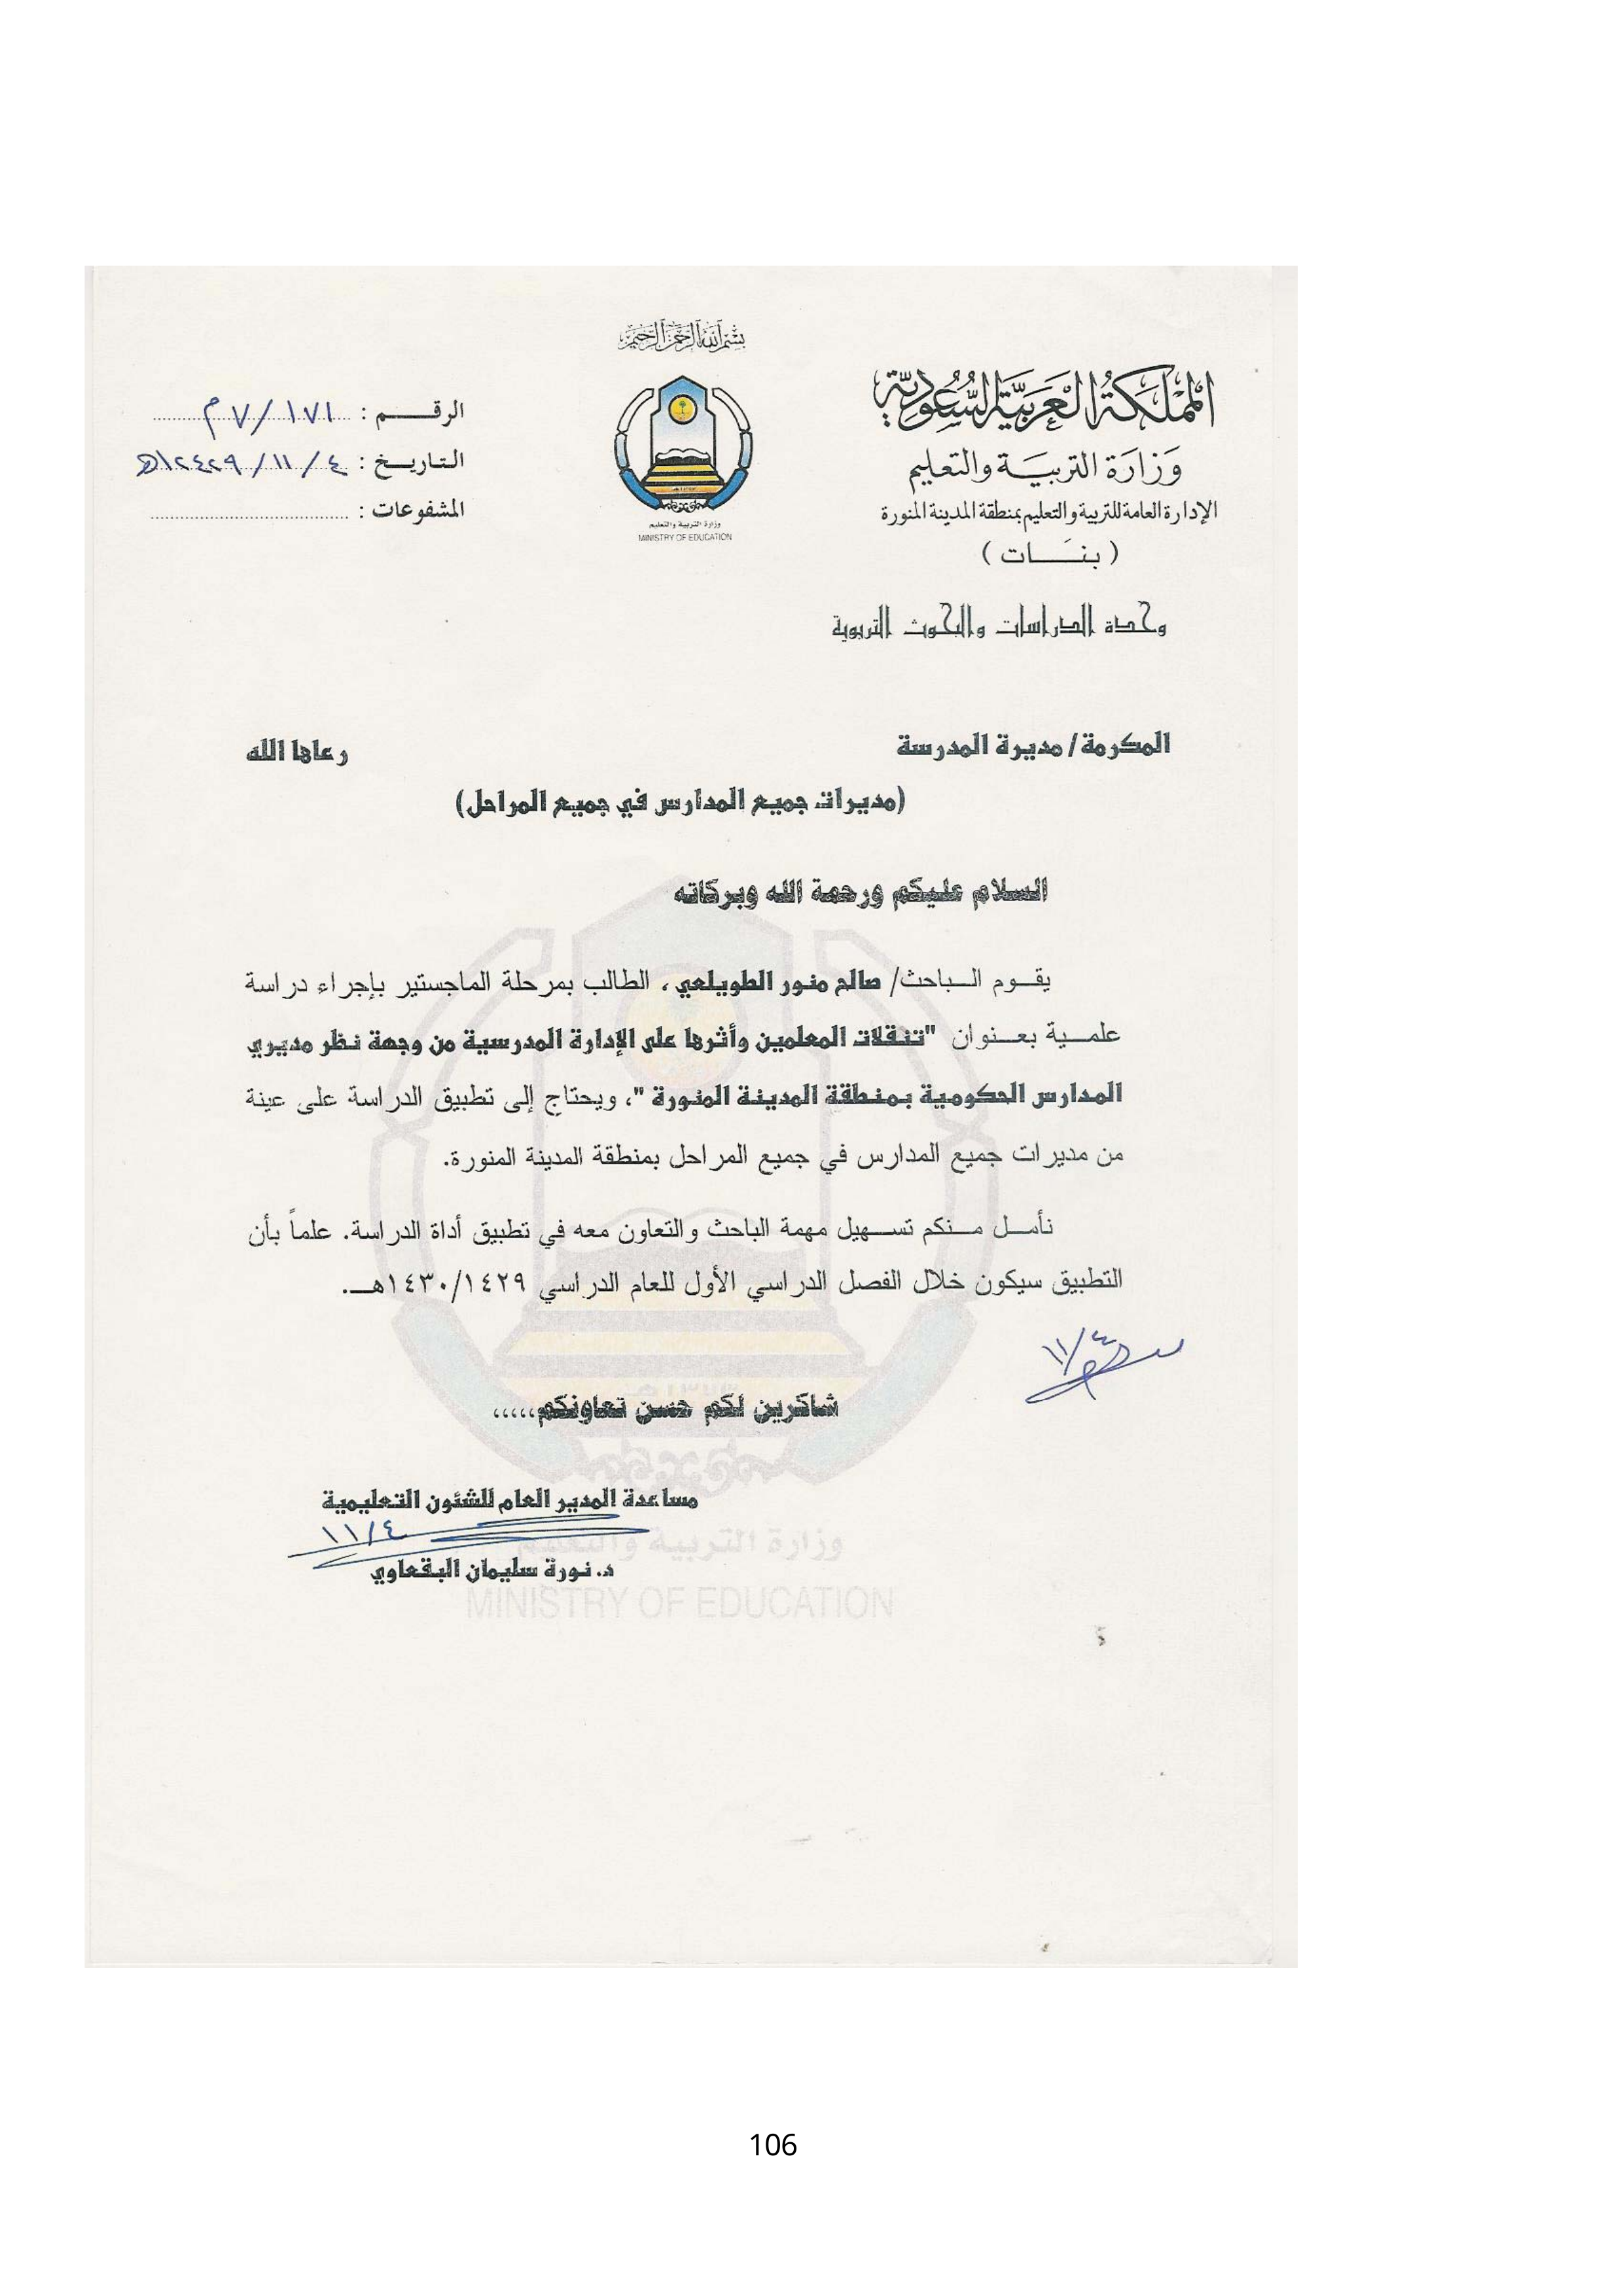 بسم الله الرحمن الرحيم
المملكة العربية السعودية
وزارة التربية والتعليم
الإدارة العامة للتربية والتعليم بمنطقة المدينة المنورة
( بنات )
وحدة الدراسات والبحوث التربوية
وزارة التربية والتعليم
MINISTRY OF EDUCATION
الرقم : ١٧١ / ٧ م
التاريخ : ٤ / ١١ / ١٤٢٩هـ
المشفوعات :
المكرمة / مديرة المدرسة رعاها الله
(مديرات جميع المدارس في جميع المراحل)
السلام عليكم ورحمة الله وبركاته
يقوم الباحث/ صالح منور الطويلعي ، الطالب بمرحلة الماجستير بإجراء دراسة
علمية بعنوان "تنقلات المعلمين وأثرها على الإدارة المدرسية من وجهة نظر مديري
المدارس الحكومية بمنطقة المدينة المنورة "، ويحتاج إلى تطبيق الدراسة على عينة
من مديرات جميع المدارس في جميع المراحل بمنطقة المدينة المنورة.
نأمل منكم تسهيل مهمة الباحث والتعاون معه في تطبيق أداة الدراسة. علماً بأن
التطبيق سيكون خلال الفصل الدراسي الأول للعام الدراسي ١٤٣٠/١٤٢٩هـ.
١١/٤
شاكرين لكم حسن تعاونكم،،،،،
مساعدة المدير العام للشئون التعليمية
١١/٤
د. نورة سليمان البقعاوي
وزارة التربية والتعليم
MINISTRY OF EDUCATION
106